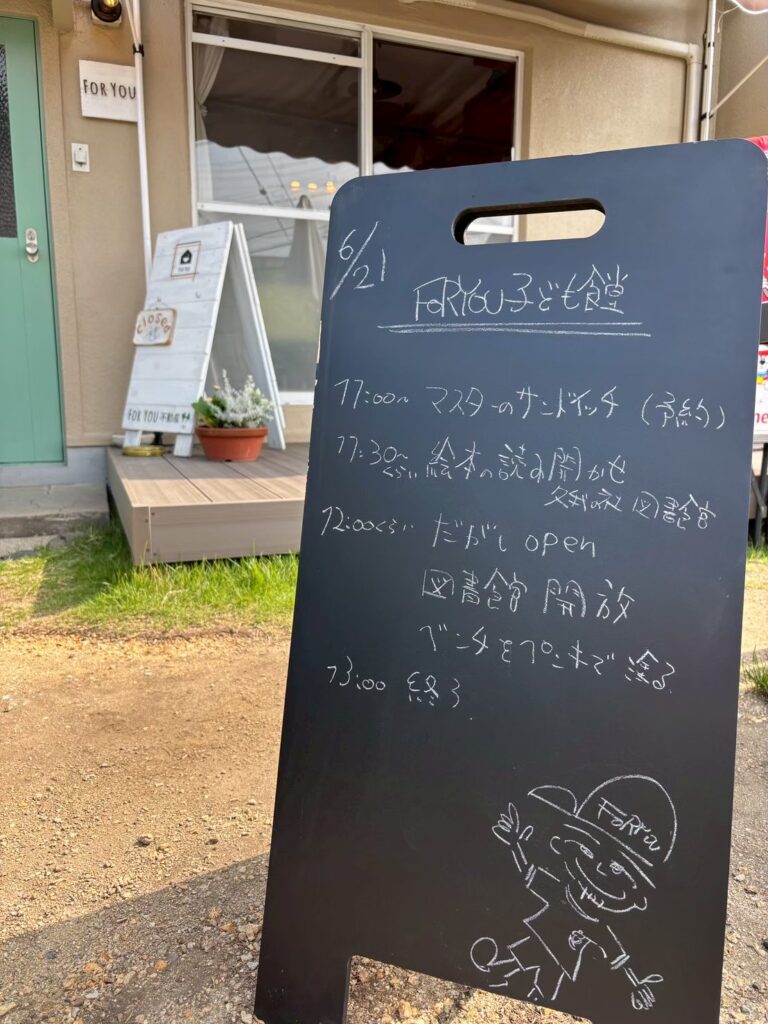 FOR YOU
closed
FOR YOU 不動産
6/21
FORYOU 子ども食堂
11:00~ マスターのサンドイッチ (予約)
11:30~くらい 絵本の読み聞かせ
久我の杜 図書館
12:00くらい だがし open
図書館 開放
ベンチをペンキで塗る
13:00 終了
FORYOU